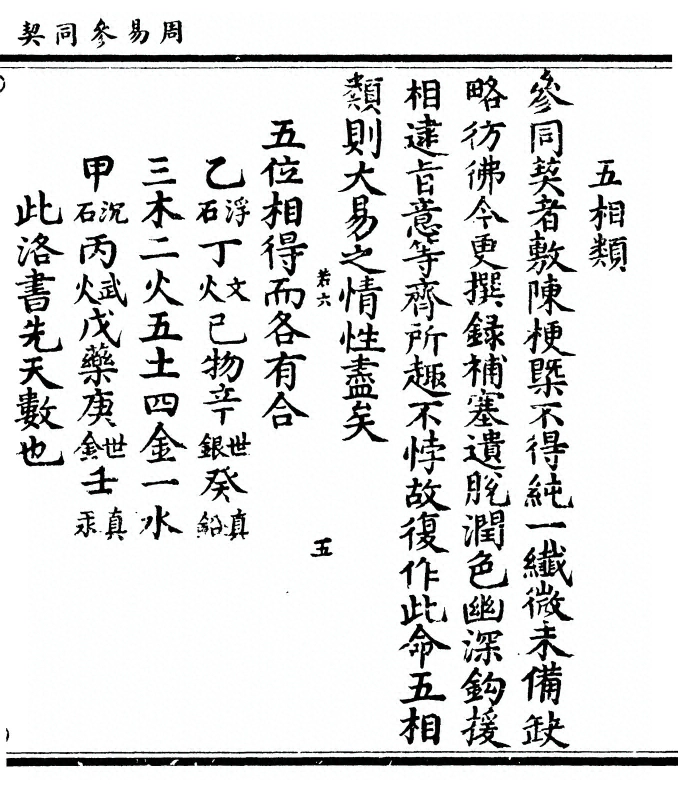 周易參同契
五相類
參同契者敷陳梗槩不得純一纖微未備缺
略彷彿今更撰錄補塞遺脫潤色幽深鈎援
相逮旨意等齊所趣不悖故復作此命五相
類則大易之情性盡矣
若六
五
五位相得而各有合
乙浮石丁文火己物辛世銀癸真鉛
三木二火五土四金一水
甲沉石丙武火戊藥庚世金壬真汞
此洛書先天數也